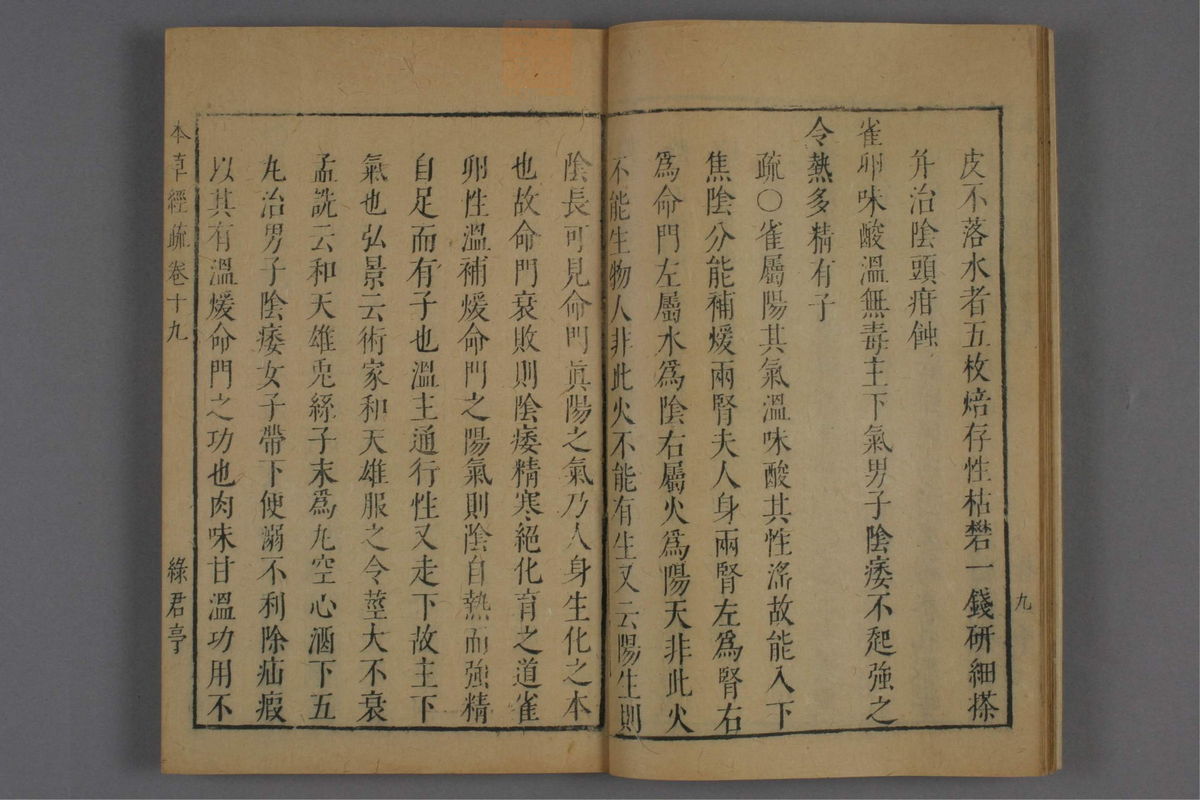 九
皮不落水者五枚焙存性枯礬一錢研細搽
并治陰頭疳蝕
雀卵味酸溫無毒主下氣男子陰痿不起強之
令熱多精有子
疏○雀屬陽其氣溫味酸其性淫故能入下
焦陰分能補煖兩腎夫人身兩腎左為腎右
為命門左屬水為陰右屬火為陽天非此火
不能生物人非此火不能有生又云陽生則
陰長可見命門眞陽之氣乃人身生化之本
也故命門衰敗則陰痿精寒絕化育之道雀
卵性溫補煖命門之陽氣則陰自熱而強精
自足而有子也溫主通行性又走下故主下
氣也弘景云術家和天雄服之令莖大不衰
孟詵云和天雄兎絲子末為丸空心酒下五
丸治男子陰痿女子帶下便溺不利除疝瘕
以其有溫煖命門之功也肉味甘溫功用不
本草經疏卷十九
綠君亭